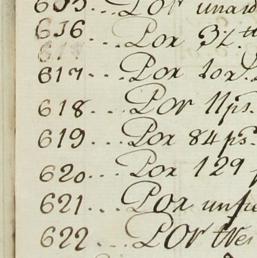 635... Por una
636... Por 32.tt
617... Por 10x.
618... Por 11ps.
619... Por 84 ps.
620... Por 129
621... Por un
622... Por tres